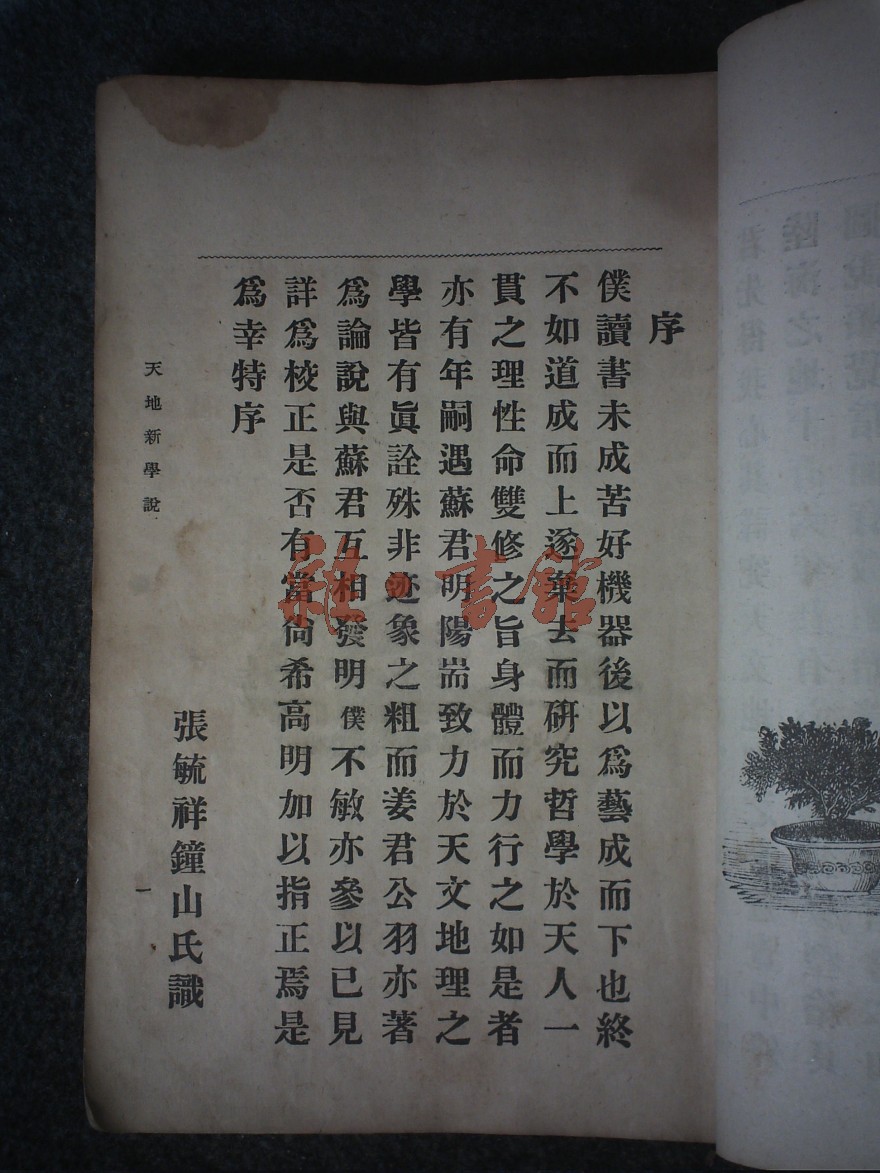 序
僕讀書未成苦好機器後以爲藝成而下也終
不如道成而上遂棄去而硏究哲學於天人一
貫之理性命雙修之旨身體而力行之如是者
亦有年嗣遇蘇君明陽耑致力於天文地理之
學皆有眞詮殊非迹象之粗而姜君公羽亦著
爲論說與蘇君互相發明僕不敏亦參以已見
詳爲校正是否有當尙希高明加以指正焉是
爲幸特序
張毓祥鐘山氏識
天地新學說
一
雜·書館